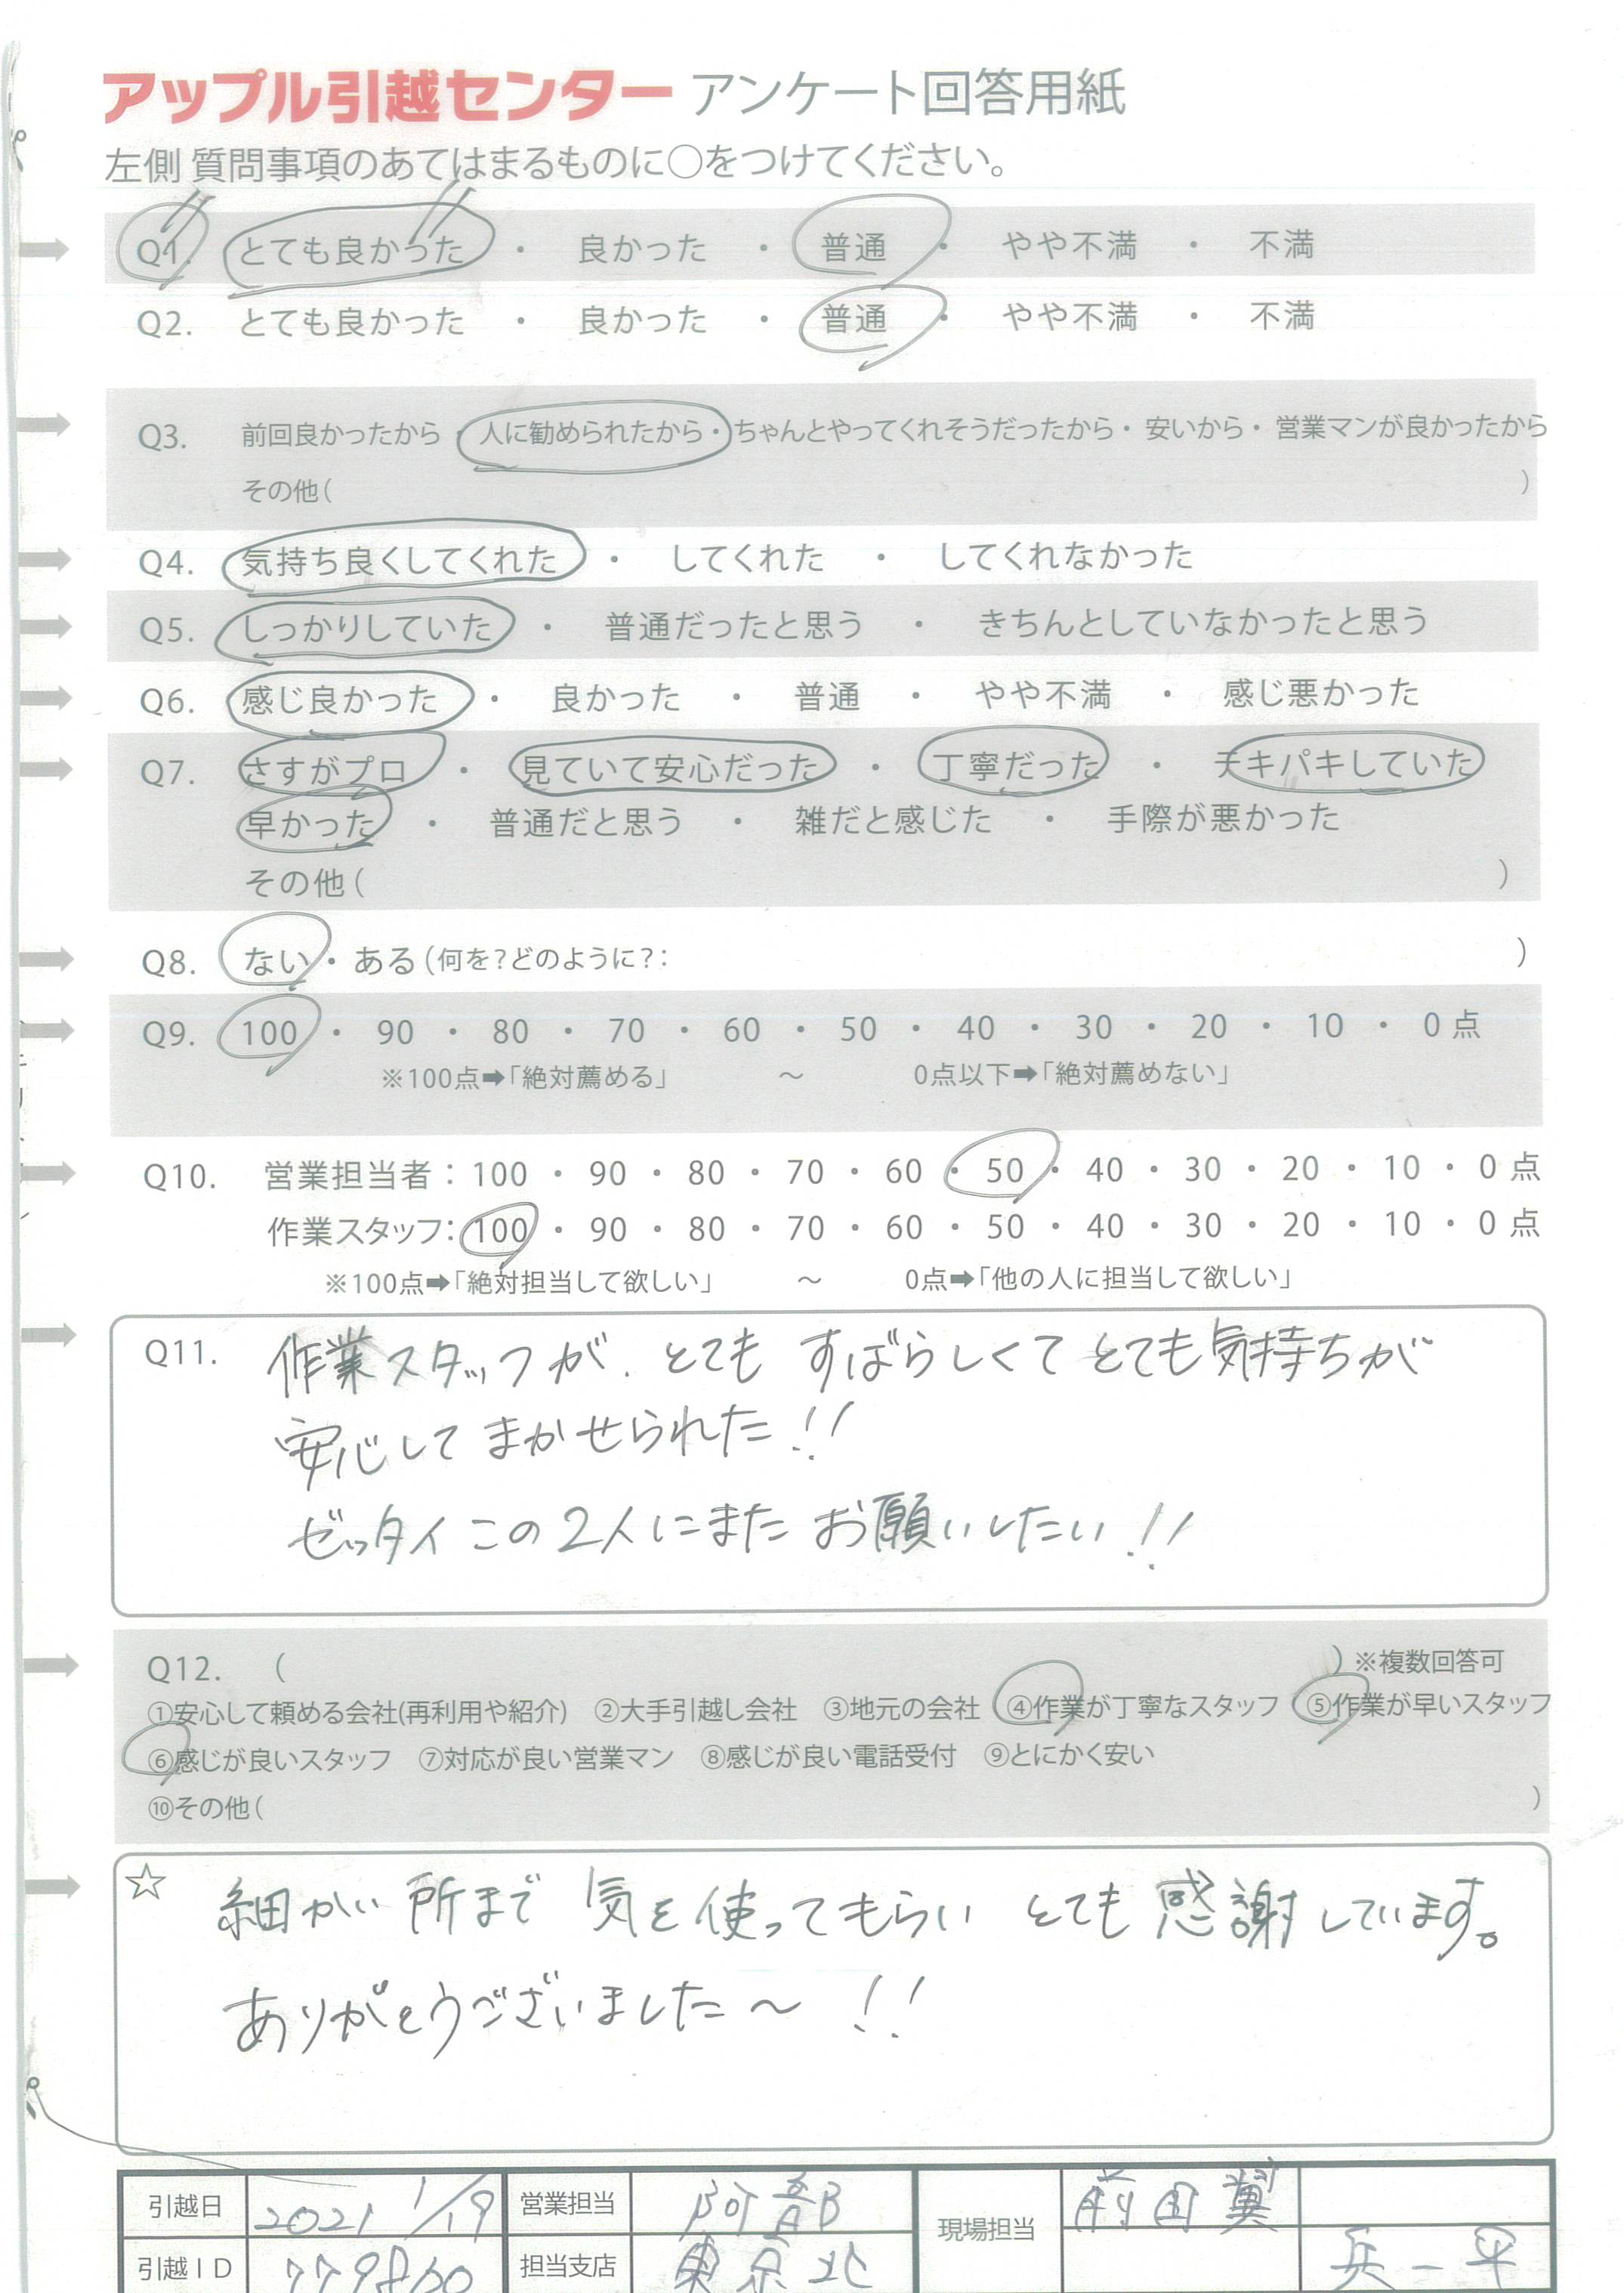 アップル引越センター アンケート回答用紙
左側 質問事項のあてはまるものに○をつけてください。
Q1. とても良かった ・ 良かった ・ 普通 ・ やや不満 ・ 不満
Q2. とても良かった ・ 良かった ・ 普通 ・ やや不満 ・ 不満
Q3. 前回良かったから ・ 人に勧められたから ・ ちゃんとやってくれそうだったから ・ 安いから ・ 営業マンが良かったから
その他( )
Q4. 気持ち良くしてくれた ・ してくれた ・ してくれなかった
Q5. しっかりしていた ・ 普通だったと思う ・ きちんとしていなかったと思う
Q6. 感じ良かった ・ 良かった ・ 普通 ・ やや不満 ・ 感じ悪かった
Q7. さすがプロ ・ 見ていて安心だった ・ 丁寧だった ・ テキパキしていた
早かった ・ 普通だと思う ・ 雑だと感じた ・ 手際が悪かった
その他( )
Q8. ない ・ ある(何を?どのように?: )
Q9. 100 ・ 90 ・ 80 ・ 70 ・ 60 ・ 50 ・ 40 ・ 30 ・ 20 ・ 10 ・ 0 点
※100点➡「絶対薦める」 ～ 0点以下➡「絶対薦めない」
Q10. 営業担当者:100 ・ 90 ・ 80 ・ 70 ・ 60 ・ 50 ・ 40 ・ 30 ・ 20 ・ 10 ・ 0 点
作業スタッフ:100 ・ 90 ・ 80 ・ 70 ・ 60 ・ 50 ・ 40 ・ 30 ・ 20 ・ 10 ・ 0 点
※100点➡「絶対担当して欲しい」 ～ 0点➡「他の人に担当して欲しい」
Q11. 作業スタッフが、とても すばらしくて とても気持ちが
安心して まかせられた!!
ゼッタイ この2人にまた お願いしたい!!
Q12. ( ) ※複数回答可
①安心して頼める会社(再利用や紹介) ②大手引越し会社 ③地元の会社 ④作業が丁寧なスタッフ ⑤作業が早いスタッフ
⑥感じが良いスタッフ ⑦対応が良い営業マン ⑧感じが良い電話受付 ⑨とにかく安い
⑩その他( )
☆ 細かい 所まで 気を使ってもらい とても 感謝しています。
ありがとうございました～ !!
引越日 2021 1/19 営業担当 阿部 現場担当 前田翼
引越ID 779860 担当支店 東京北 兵一平